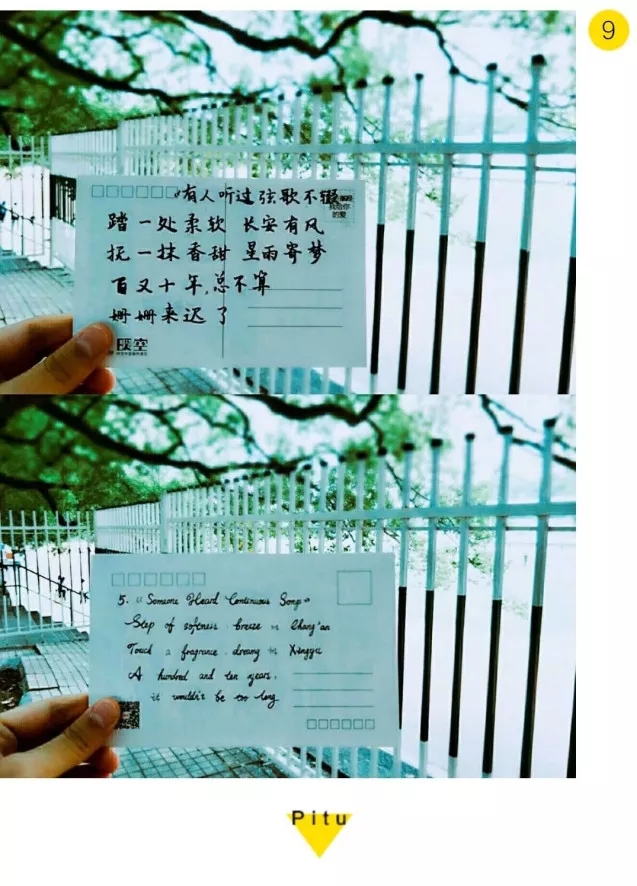 9
《有人听过弦歌不辍》
我给你
的爱
踏一处柔软 长安有风
抚一抹香甜 星雨寄梦
百又十年,总不算
姗姗来迟了
5. 《Someone Heard Continuous Song》
Step of softness, breeze in Chang'an
Touch a fragrance, dreamy in Xingyu
A hundred and ten years,
it wouldn't be too long
Pitu